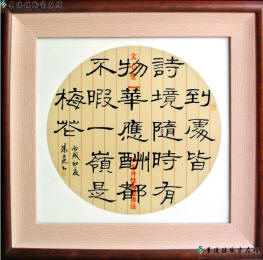 到處皆
詩境隨時有
物華應酬都
不暇一嶺是
梅花
丙戌初夏